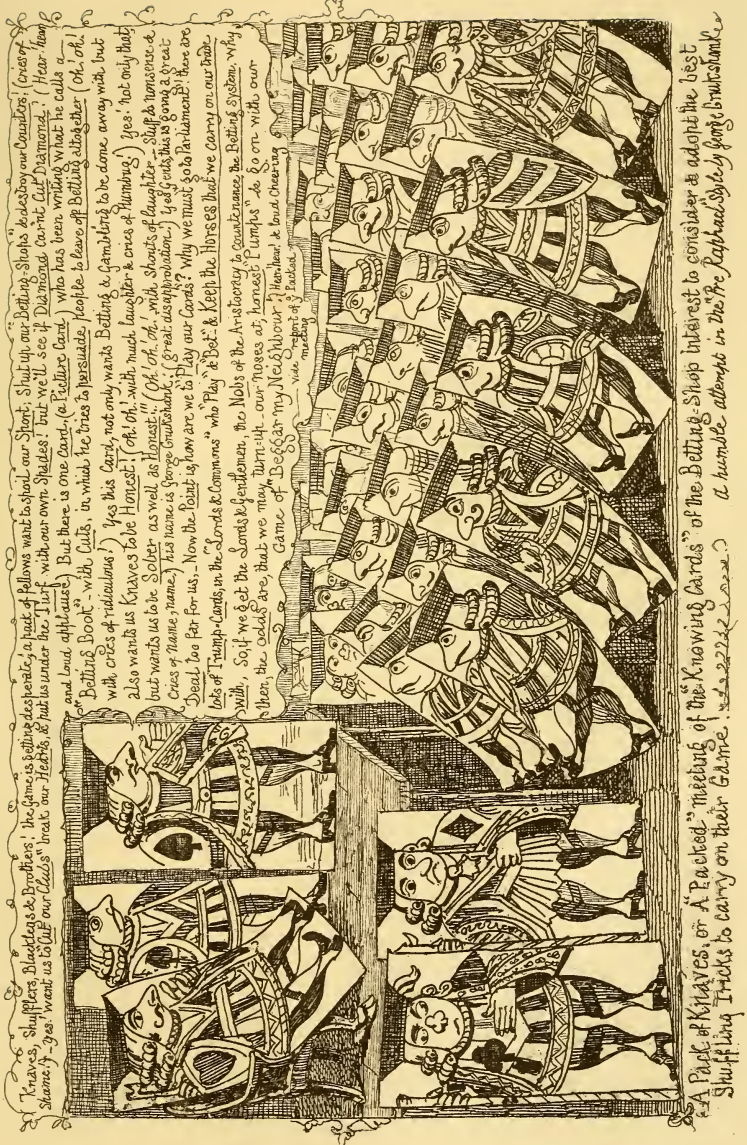 Knaves, Shufflers, Blacklegs & Brothers! the Game is getting desperate, a pack of fellows want to spoil our Sport. Shut up our Betting-Shops & destroy our Counters! (Cries of
Shame!) yes! want us to "Cut our Clubs" break our Hearts, & put us under the Turf, with our own Spades! but we'll see if Diamond carn't Cut Diamond! (Hear! hear!
and loud applause) But there is one Card, (a Picture Card) who has been writing what he calls a
"Betting Book" - with Cuts, in which he tries to persuade people to leave off Betting altogether (oh! oh!
with cries of ridiculous!) Yes this Card, not only wants Betting & Gambling to be done away with but
also wants us Knaves to be Honest! (oh! oh! - with much laughter & cries of Humbug!) Yes! not only that,
but wants us to be Sober as well as honest!!! (Oh! oh! oh! - with shouts of laughter - Stuff & nonsense &
Cries of name, name,) his name is George Cruikshank, (great disapprobation!) Yes! Gents, this is going a great
"Deal" too far for us. - Now the Point is, how are we to "Play our Cards? Why we must go to Parliament! there are
lots of Trump-Cards, in the "Lords & Commons" who "Play" & "Bet" & Keep the Horses that we carry on our trade
with, So, if we get the Lords & Gentlemen, the Nobs of the Aristocracy to countenance the Betting System, why
then, the odds are, that we may turn-up our noses at, honest "Pumps" & Go on with our
Game of "Beggar my Neighbour", (Hear! hear! & loud cheering
vide report of ye Packed
meeting
A Pack of Knaves, or "A Packed" meeting of the "Knowing Cards" of the Betting-Shop interest to consider & adopt the best
Shuffling Tricks to carry on their Game.
a humble attempt in the "Pre Raphael" Style by George Cruikshank